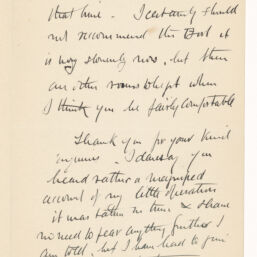 that time. I certainly should
not recommend this Dart it
is very slovenly now, but there
are other rooms & kept when
I think you be fairly comfortable
Thank you for your kind
enquiries. I daresay you
heard rather a magnified
account of my little operation
it was rather in time & I have
no need to fear anything further I
am told, but I have had to give